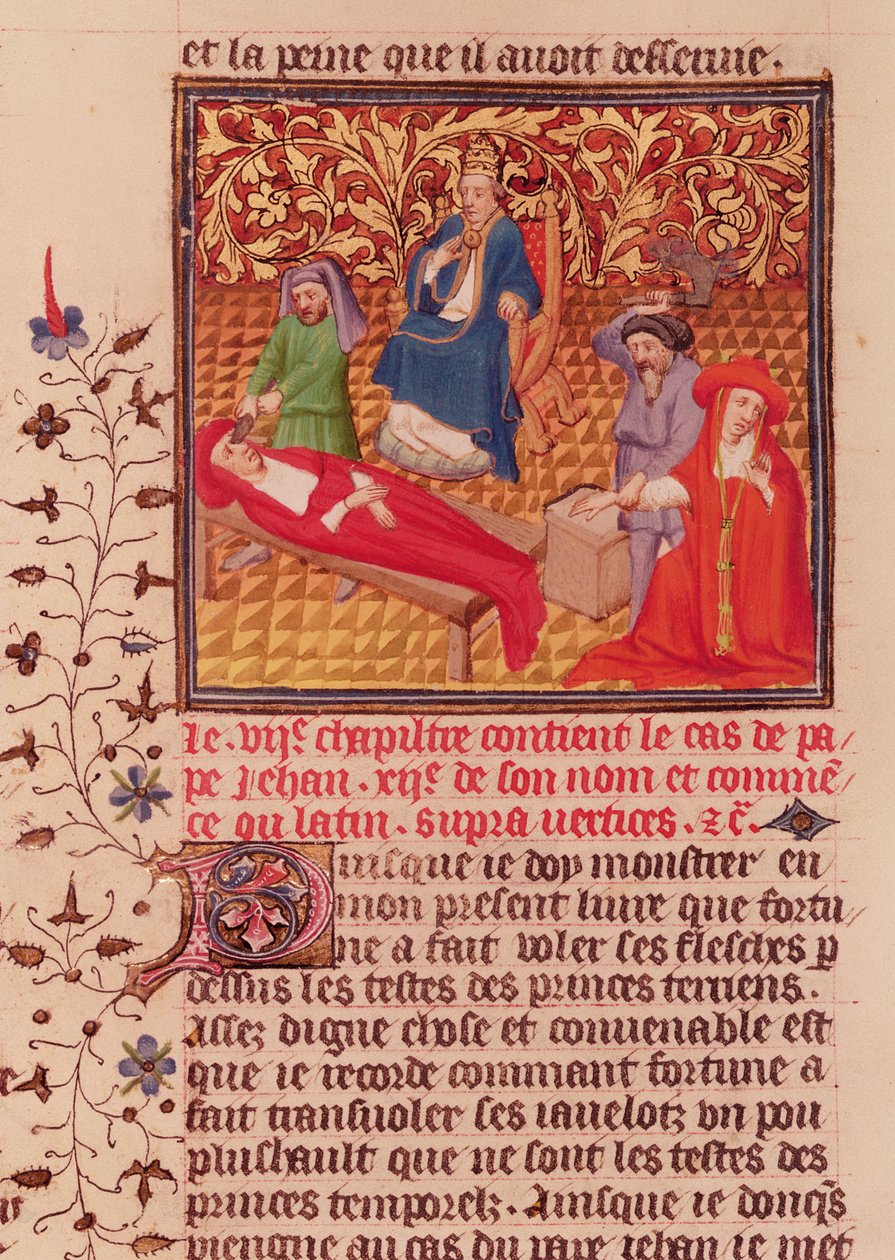 et la peine que il auoit desseruie.
Le .vij.e chapiltre contient le cas de pa/
pe Jehan .xij.e de son nom et comme͂/
ce ou latin. supra uertices. ⁊c̃.
Puisque ie doy monstrer en
mon present liure que fortu
ne a fait voler ses flesches p̲
dessus les testes des princes terriens.
Assez digne chose et conuenable est
que ie recorde commant fortune a
fait transuoler ses iauelotz vn pou
plushault que ne sont les testes des
princes temporelz. Ainsque ie donq̃s
viengne au cas du pape iehan ie met